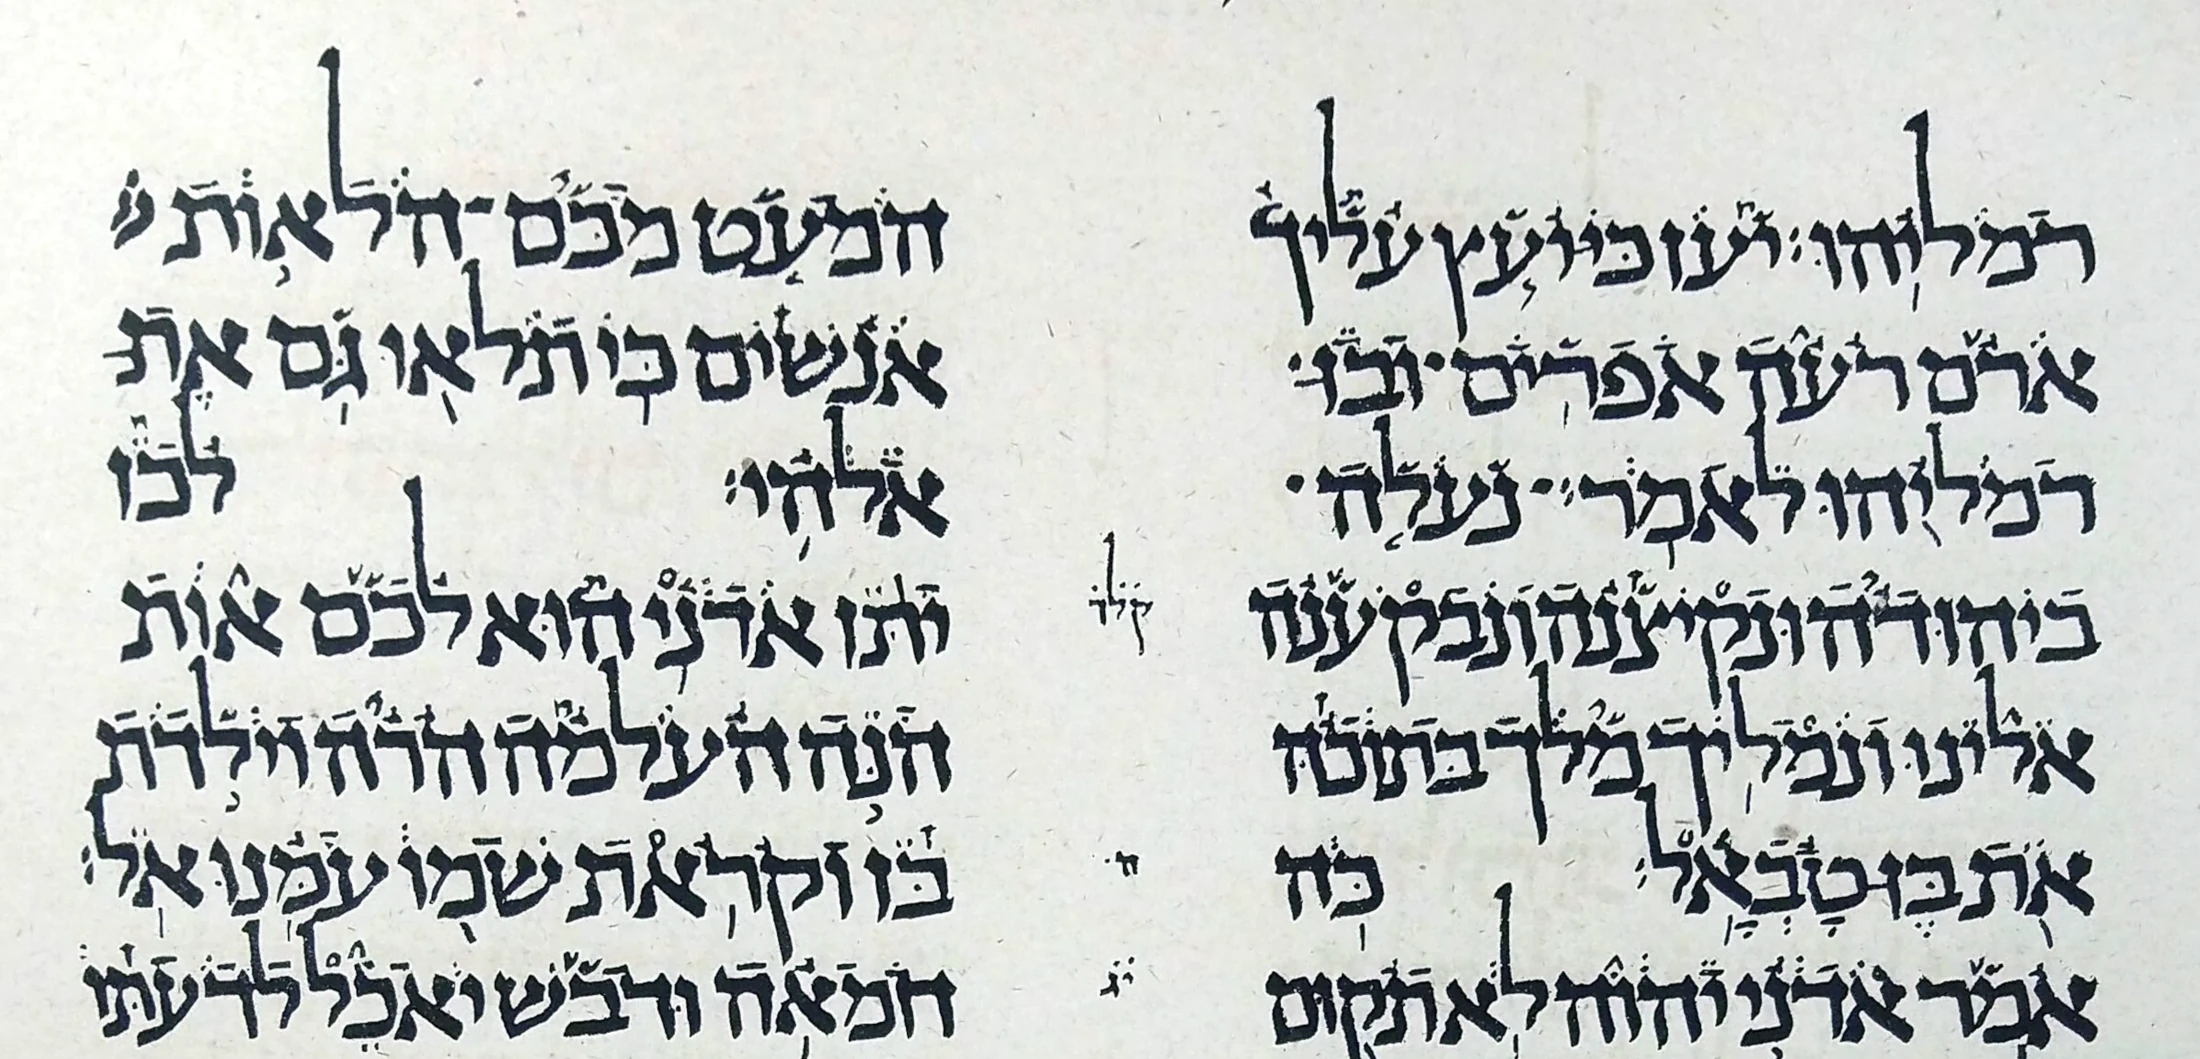 רמליהו׃ יען כי יעץ עליך
ארם רעה אפרים ובן
רמליהו לאמר׃ נעלה
ביהודה ונקיצנה ונבקענה
אלינו ונמליך מלך בתוכה
את בן טבאל׃ כה
אמר אדני יהוה לא תקום
קלד
ח
יג
המעט מכם הלאות
אנשים כי תלאו גם את
אלהי׃ לכן
יתן אדני הוא לכם אות
הנה העלמה הרה וילדת
בן וקראת שמו עמנו אל׃
חמאה ודבש יאכל לדעתו